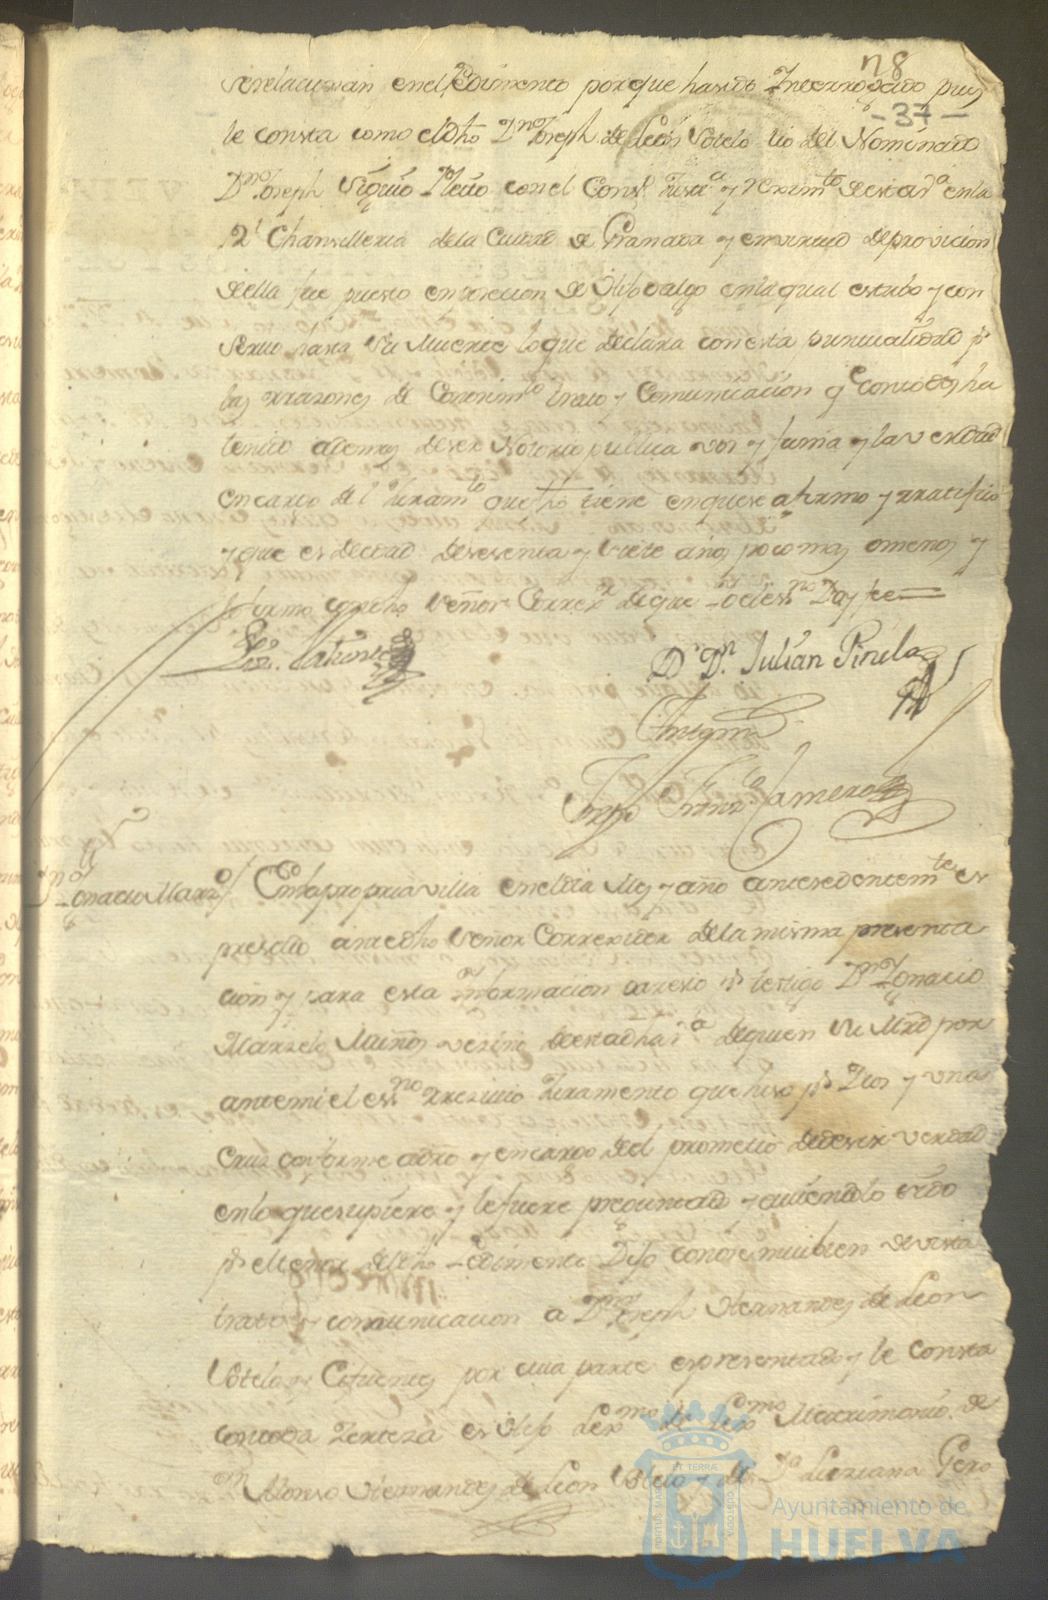 78
-37-
se relacionan en el Pedimento porque ha sido Interrogado pues
le consta como el dho Dn Joseph de León Sotelo tio del Nominado
Dn Joseph siguió Pleito con el Consº Justª y Reximto de esta vª en la
Rl Chansilleria de la Ciudad de Granada y en virtud de provicion
de ella fue puesto en posecion de Hijodalgo en la qual estubo y con
servo hasta su Muerte lo que declara con esta puntualidad pr
las rrazones de Conosimto trato y Comunicacion qe con todos ha
tenido ademas de ser Notorio publica vos y fama y la verdad
en cargo del Juramto que fho tiene en que se afirmo y rratifico
y que es de edad de sesenta y siete años poco mas o menos y
lo firmo con dho Señor Correxr de que Yo el essno Doy fee
Dr Dn Julián Pinela
Antemi
Franco Camero
Dn Ignacio Marzo
En la propria villa en el dia Mes y año antesedentemte es
presado ante dho Señor Correxidor de la misma presenta
cion y para esta Informacion paresio pr testigo Dn Ignacio
Marzelo Muiños vezino de esta dha vª de quien su Mrd por
antemi el essno rrezivio Juramento que hiso pr Dios y una
Cruz conforme a dro y en cargo del prometio de desir verdad
en lo que supiere y le fuere preguntado y aviendolo sido
pr el tenor del dho Pedimento Dijo conose mui bien de vista
trato y comunicacion a Dn Joseph Hernandes de León
Sotelo y Cifuentes por cuia parte es presentado y le consta
con toda Zerteza es Hijo Lexmo de Lexmo Matrimonio de
Dn Alonso Hernandes de León Sotelo y de Da Luziana Gero
ET TERRÆ
CUSTODIA
Ayuntamiento de
HUELVA